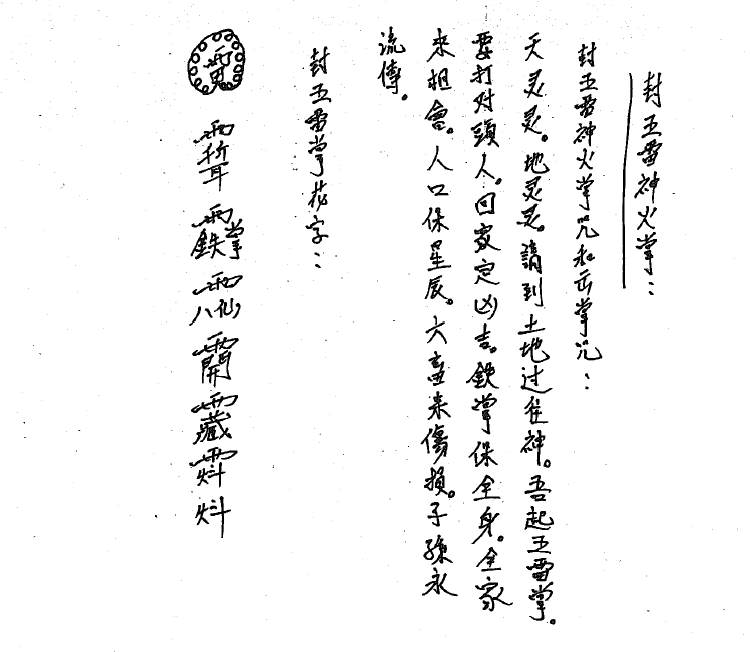 封五雷神火掌：
封五雷神火掌咒和出掌咒：
天灵灵。地灵灵。請到土地过往神。吾起五雷掌。
要打对頭人。回家定凶吉。鉄掌保全身。全家
来相會。人口保星辰。六畜来傷損。子孫永
流傳。
封五雷掌花字：